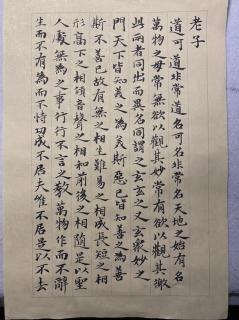 老子
道可道非常道名可名非常名天地之始有名
萬物之母常無欲以觀其妙常有欲以觀其徼
此兩者同出而異名同謂之玄玄之又玄衆妙之
門天下皆知美之為美斯惡已皆知善之為善
斯不善已故有無之相生難易之相成長短之相
形高下之相傾音聲之相和前後之相隨是以聖
人處無為之事行行不言之教萬物作而不辭
生而不有為而不恃功成不居夫惟不居是以不去